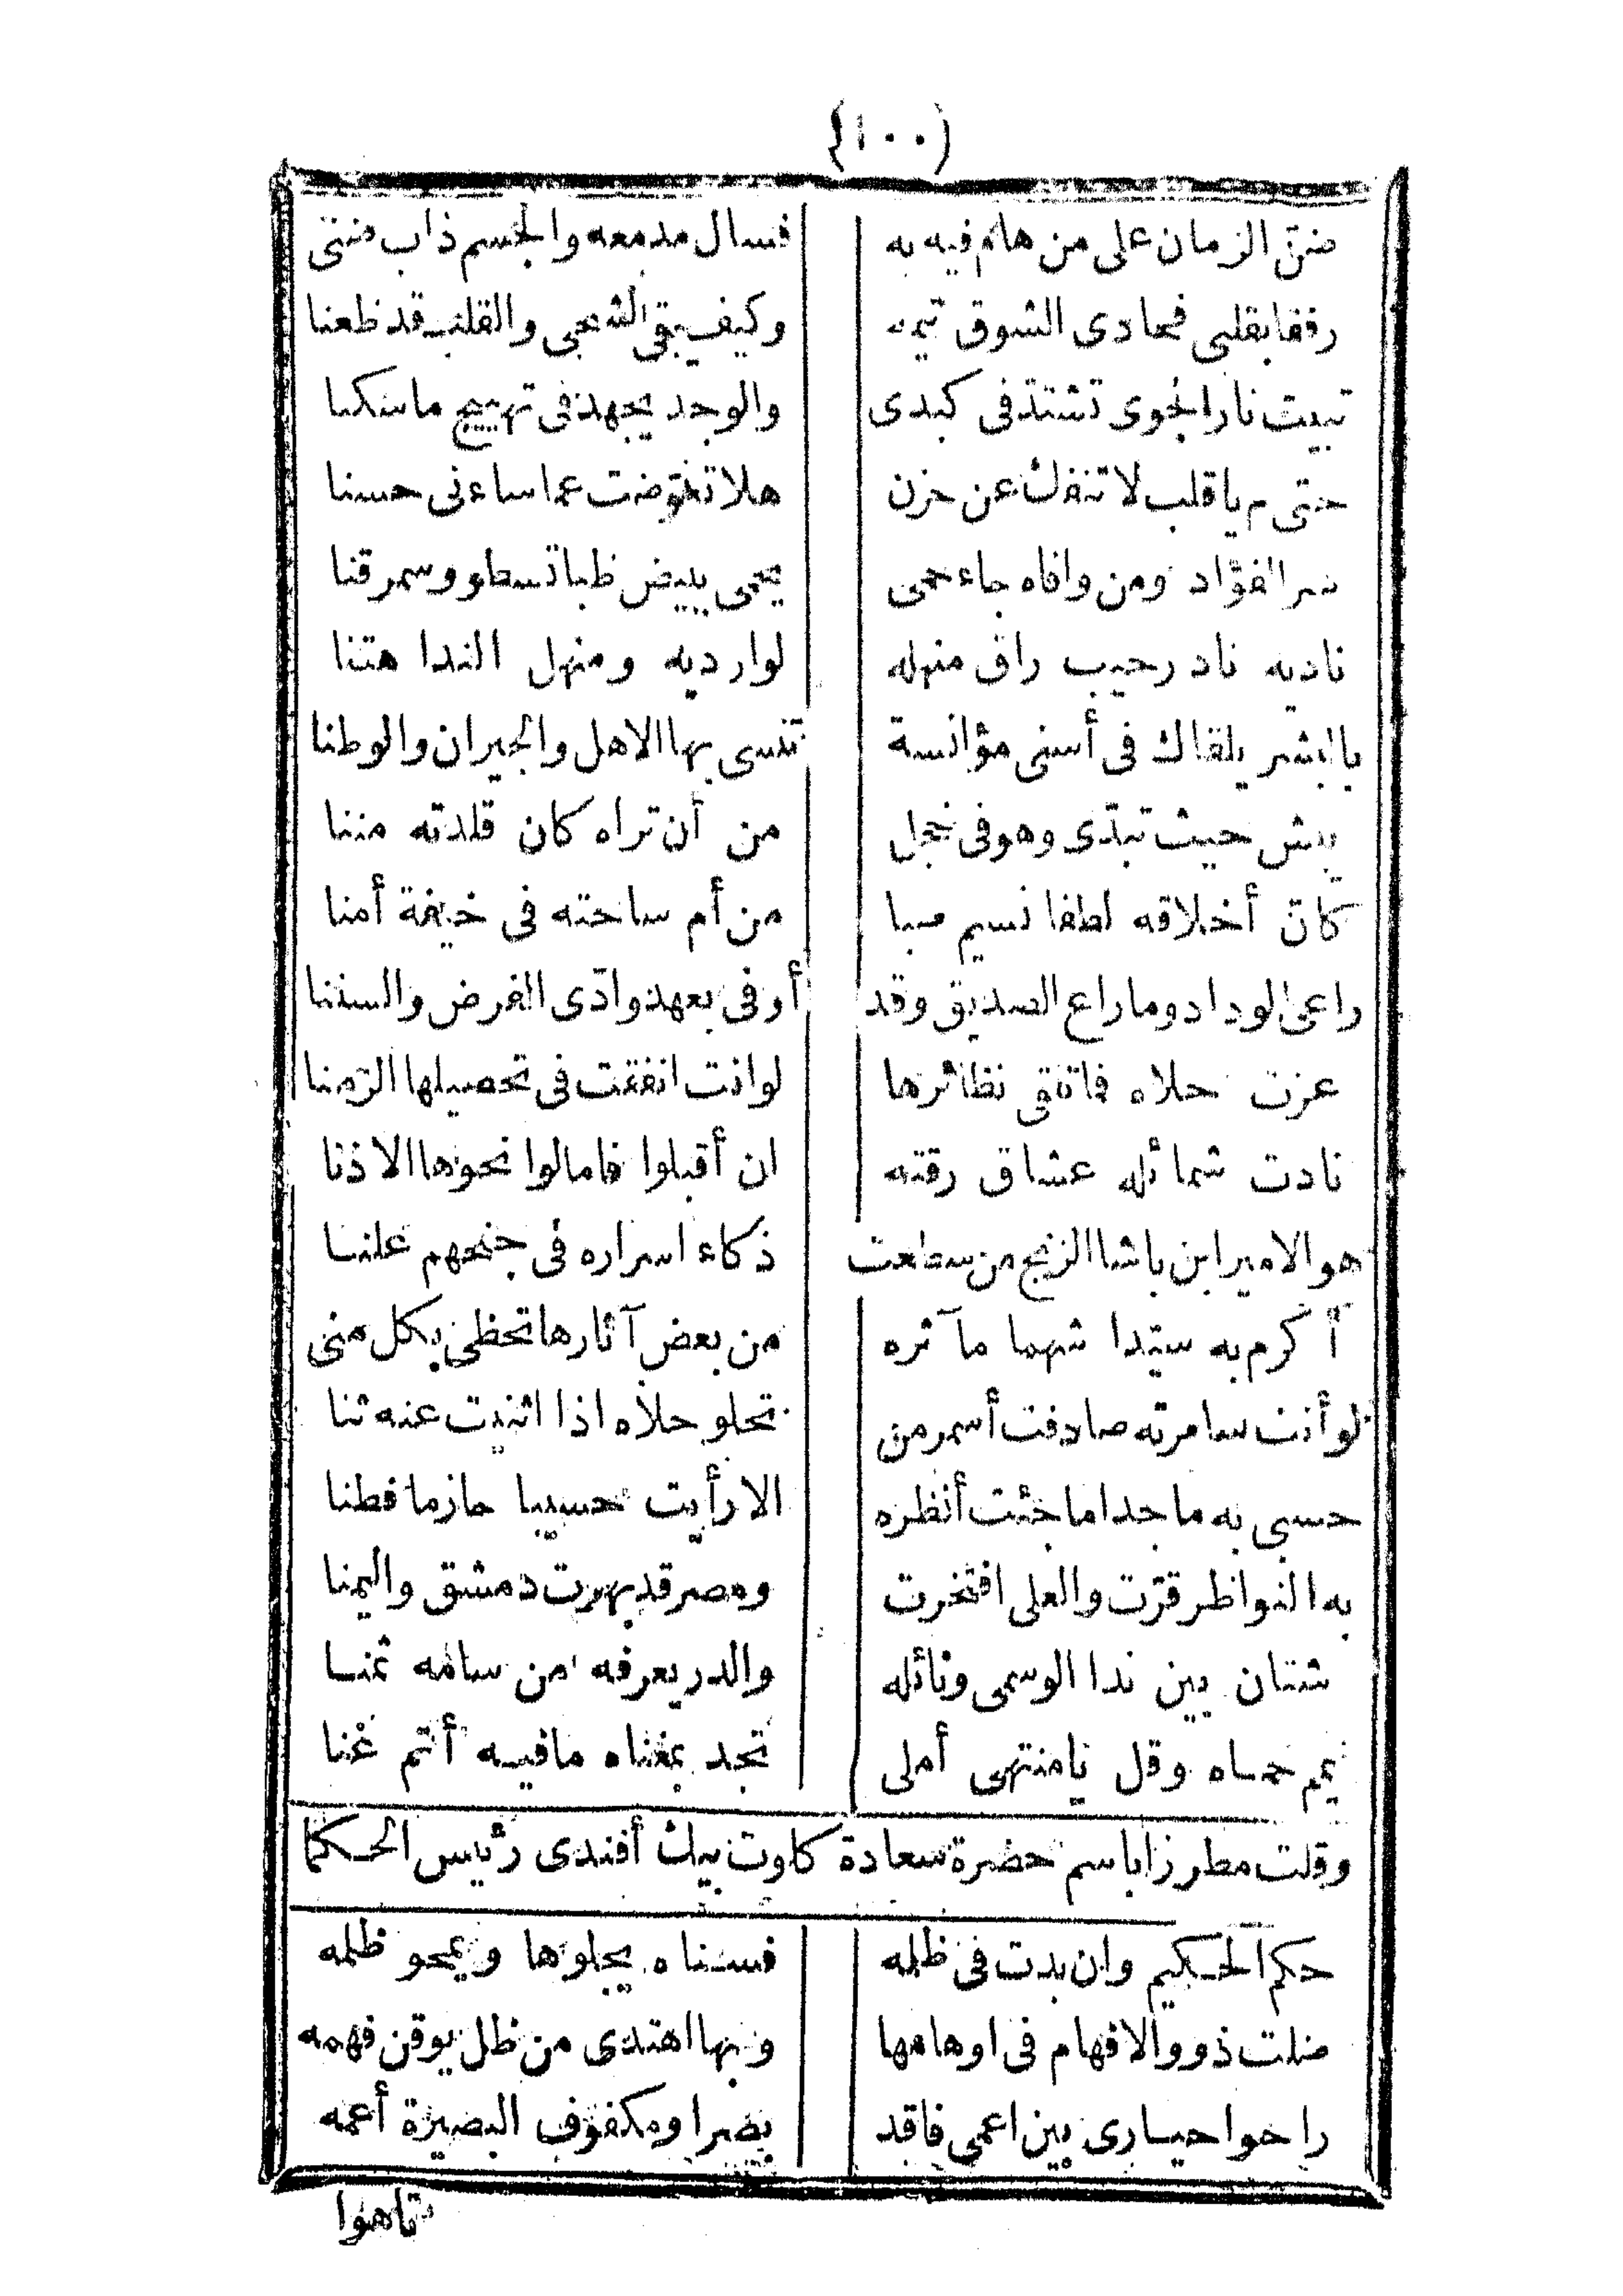 (١٠٠)
ضنّ الزمان على من هام فيه به فسال مدمعه والجسم ذاب ضنى
رفقا بقلبى فحادى الشوق تيمه وكيف يبقى الشجى والقلب قد ظعنا
تبيت نار الجوى تشتدّ فى كبدى والوجد يجهد فى تهييج ما سكنا
حتى م يا قلب لا تنفك عن حزن هلا تعوّضت عما ساءنى حسنا
سر الفؤاد ومن وافاه جاء حمى يحمى ببيض ظبا تسطو وسمر قنا
ناديه ناد رحيب راق منهله لوارديه ومنهل الندا هتنا
بالبشر يلقاك فى أسنى مؤانسة تنسى بها الاهل والجيران والوطنا
يبش حيث تبدّى وهو فى خجل من أن تراه كان قلدته مننا
كانّ أخلاقه لطفا نسيم صبا من أم ساحته فى خيفة أمنا
راعى الوداد وما راع الصديق وقد أوفى بعهد وادّى الفرض والسننا
عزت حلاه فما تلقى نظائرها لوانت انفقت فى تحصيلها الزمنا
نادت شمائله عشاق رقته ان أقبلوا فامالوا نحوها الاذنا
هو الامير ابن باشا الزنج من سطعت ذكاء اسراره فى جنحهم علنا
أكرم به سيّدا شهما مآثره من بعض آثارها تحظى بكل منى
لو أنت سامرته صادفت أسمر من تحلو حلاه اذا اثنيت عنه ثنا
حسبى به ماجدا ما جئت أنظره الا رأيت حسيبا حازما فطنا
به النواظر قرّت والعلى افتخرت ومصر قد بهرت دمشق واليمنا
شتان بين ندا الوسمى ونائله والدر يعرفه من سامه ثمنا
يمم حماه وقل يا منتهى أملى تجد بمغناه ما فيه أتم غنا
وقلت مطرزا باسم حضرة سعادة كلوت بيك أفندى رئيس الحكما
حكم الحكيم وان بدت فى ظله فسناه يجلوها ويمحو ظلمه
ضلت ذوو الافهام فى اوهامها وبها اهتدى من ظل يوقن فهمه
راحوا حيارى بين اعمى فاقد بصرا ومكفوف البصيرة أعمه
تاهوا